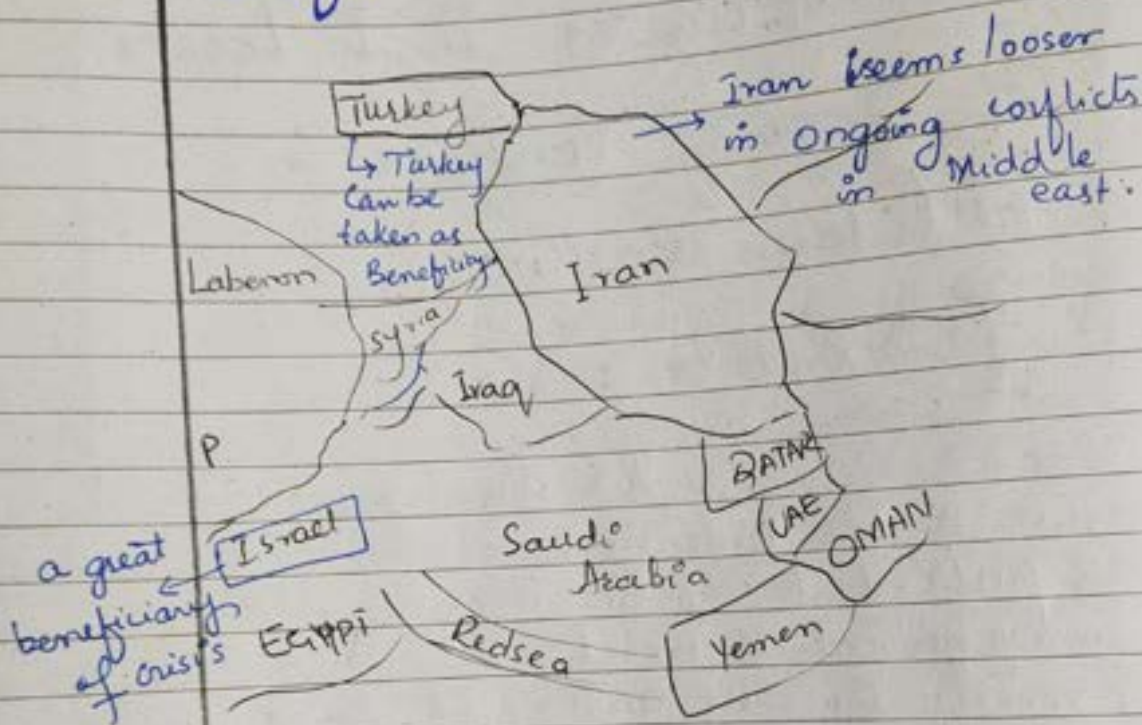 Turkey
↳ Turkey
Can be
taken as
Beneficiary
→ Iran seems looser
in ongoing conflicts
in Middle
east.
Laberon
Syria
Iran
Iraq
P
QATAR
UAE
OMAN
Israel
a great
beneficiary
of crisis
Saudi
Arabia
Redsea
Yemen